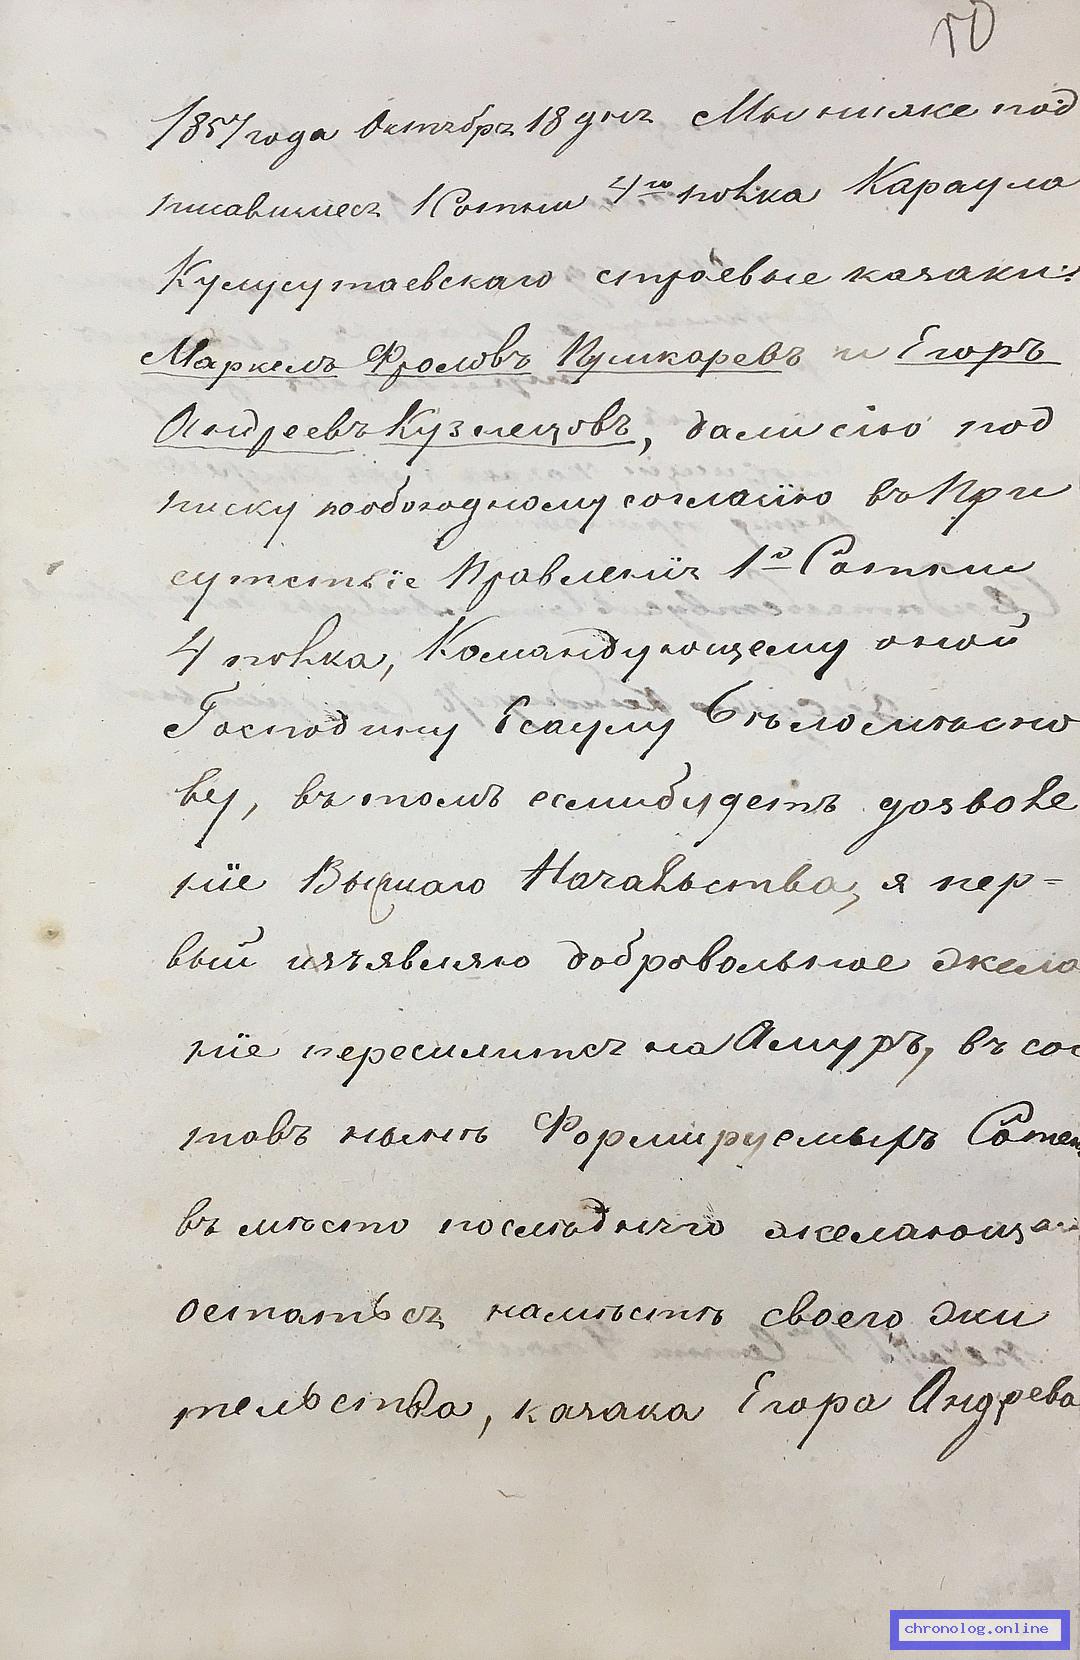 50
1857 года Октября 18 дня Мы нижепод
писавшиеся 1 Сотни 4го полка Караула
Кулусутаевскаго строевые казаки:
Маркелъ Фроловъ Пушкаревъ и Егоръ
Андреевъ Кузнецовъ, дали сію под
писку пообоюдному согласiю въ При
сутствiе Правленiя 1й Сотни
4 полка, Командующему оной
Господину Есаулу Бѣломѣсно
ву, въ томъ еслибудетъ дозволе
нiе Высшаго Начальства, я пер=
вый изъявляю добровольное жела
нiе переселится на Амуръ, въ сос
тавъ нынѣ Формируемыхъ Сотен
въ мѣсто послѣдняго желающа
остаться намѣстѣ своего жи
тельства, казака Егора Андрева
chronolog.online